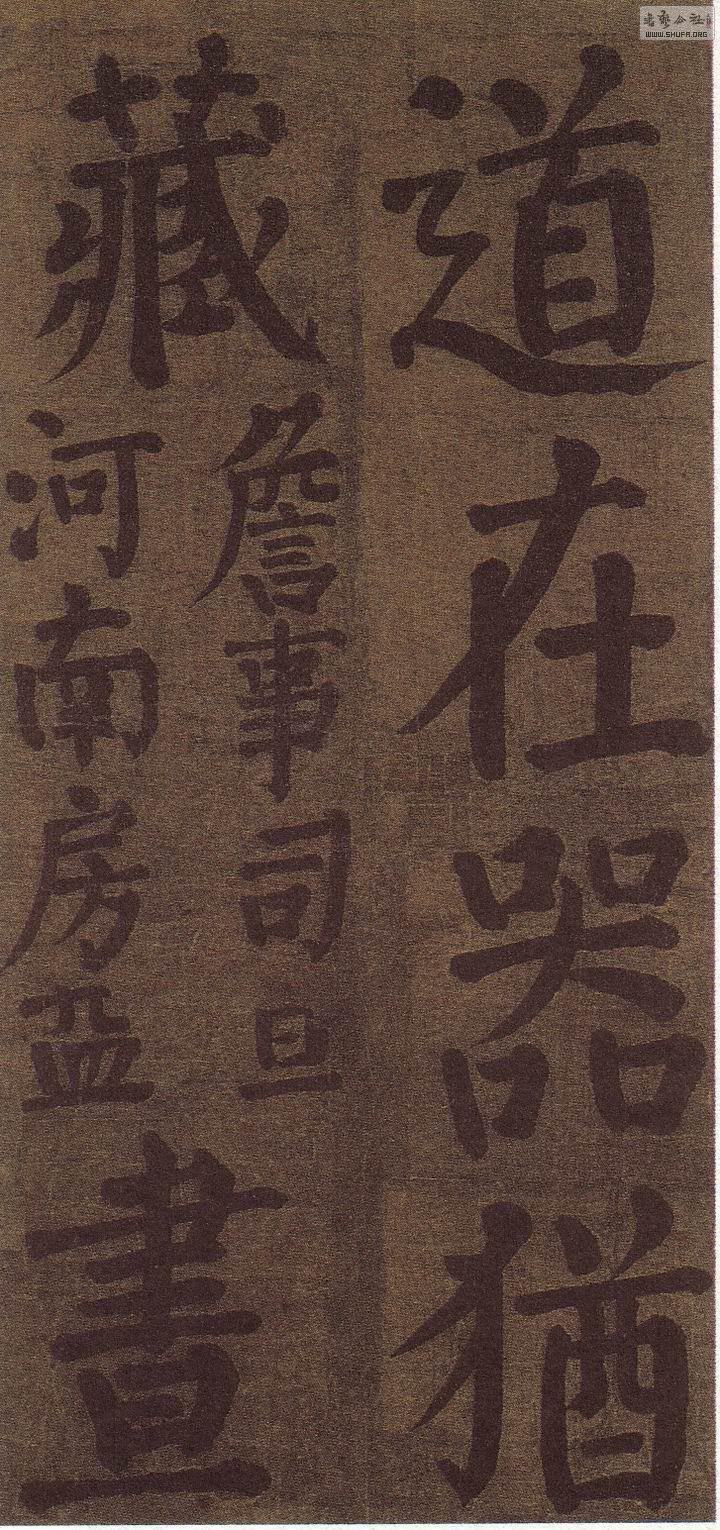 道在器猶
藏
詹事司旦
河南房
晝
書藝公社
WWW.SHUFA.ORG